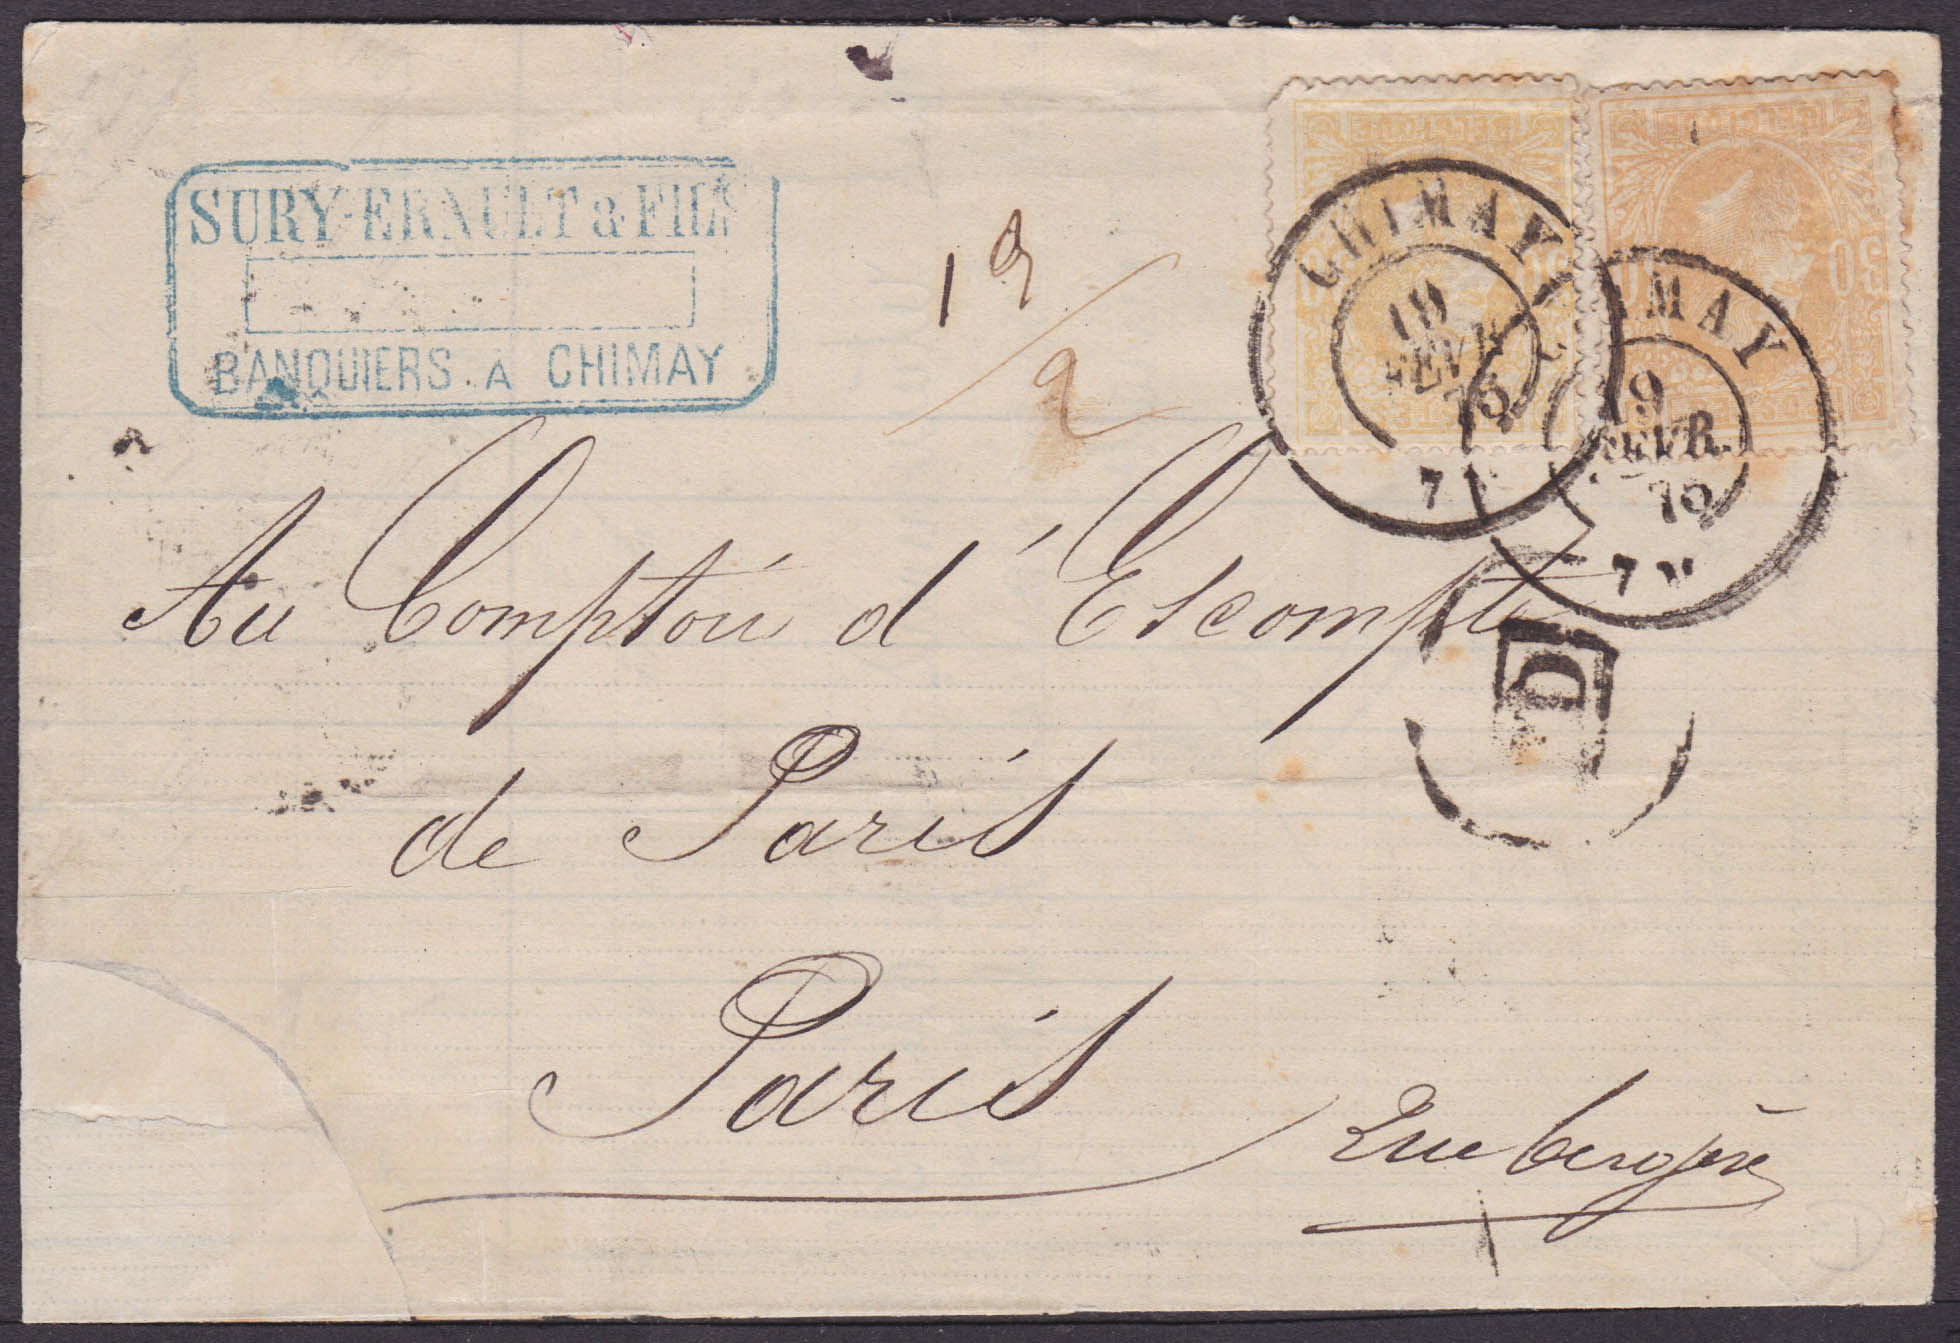 SURY-ERNULT & FILS
BANQUIERS A CHIMAY
19/2
BELGIQUE
BELGIQUE
30
30
CHIMAY
19
FEVR.
75
7
CHIMAY
19
FEVR.
75
7 M
PD
Au Comptoir d'Escompte
de Paris
Paris
Rue bergère